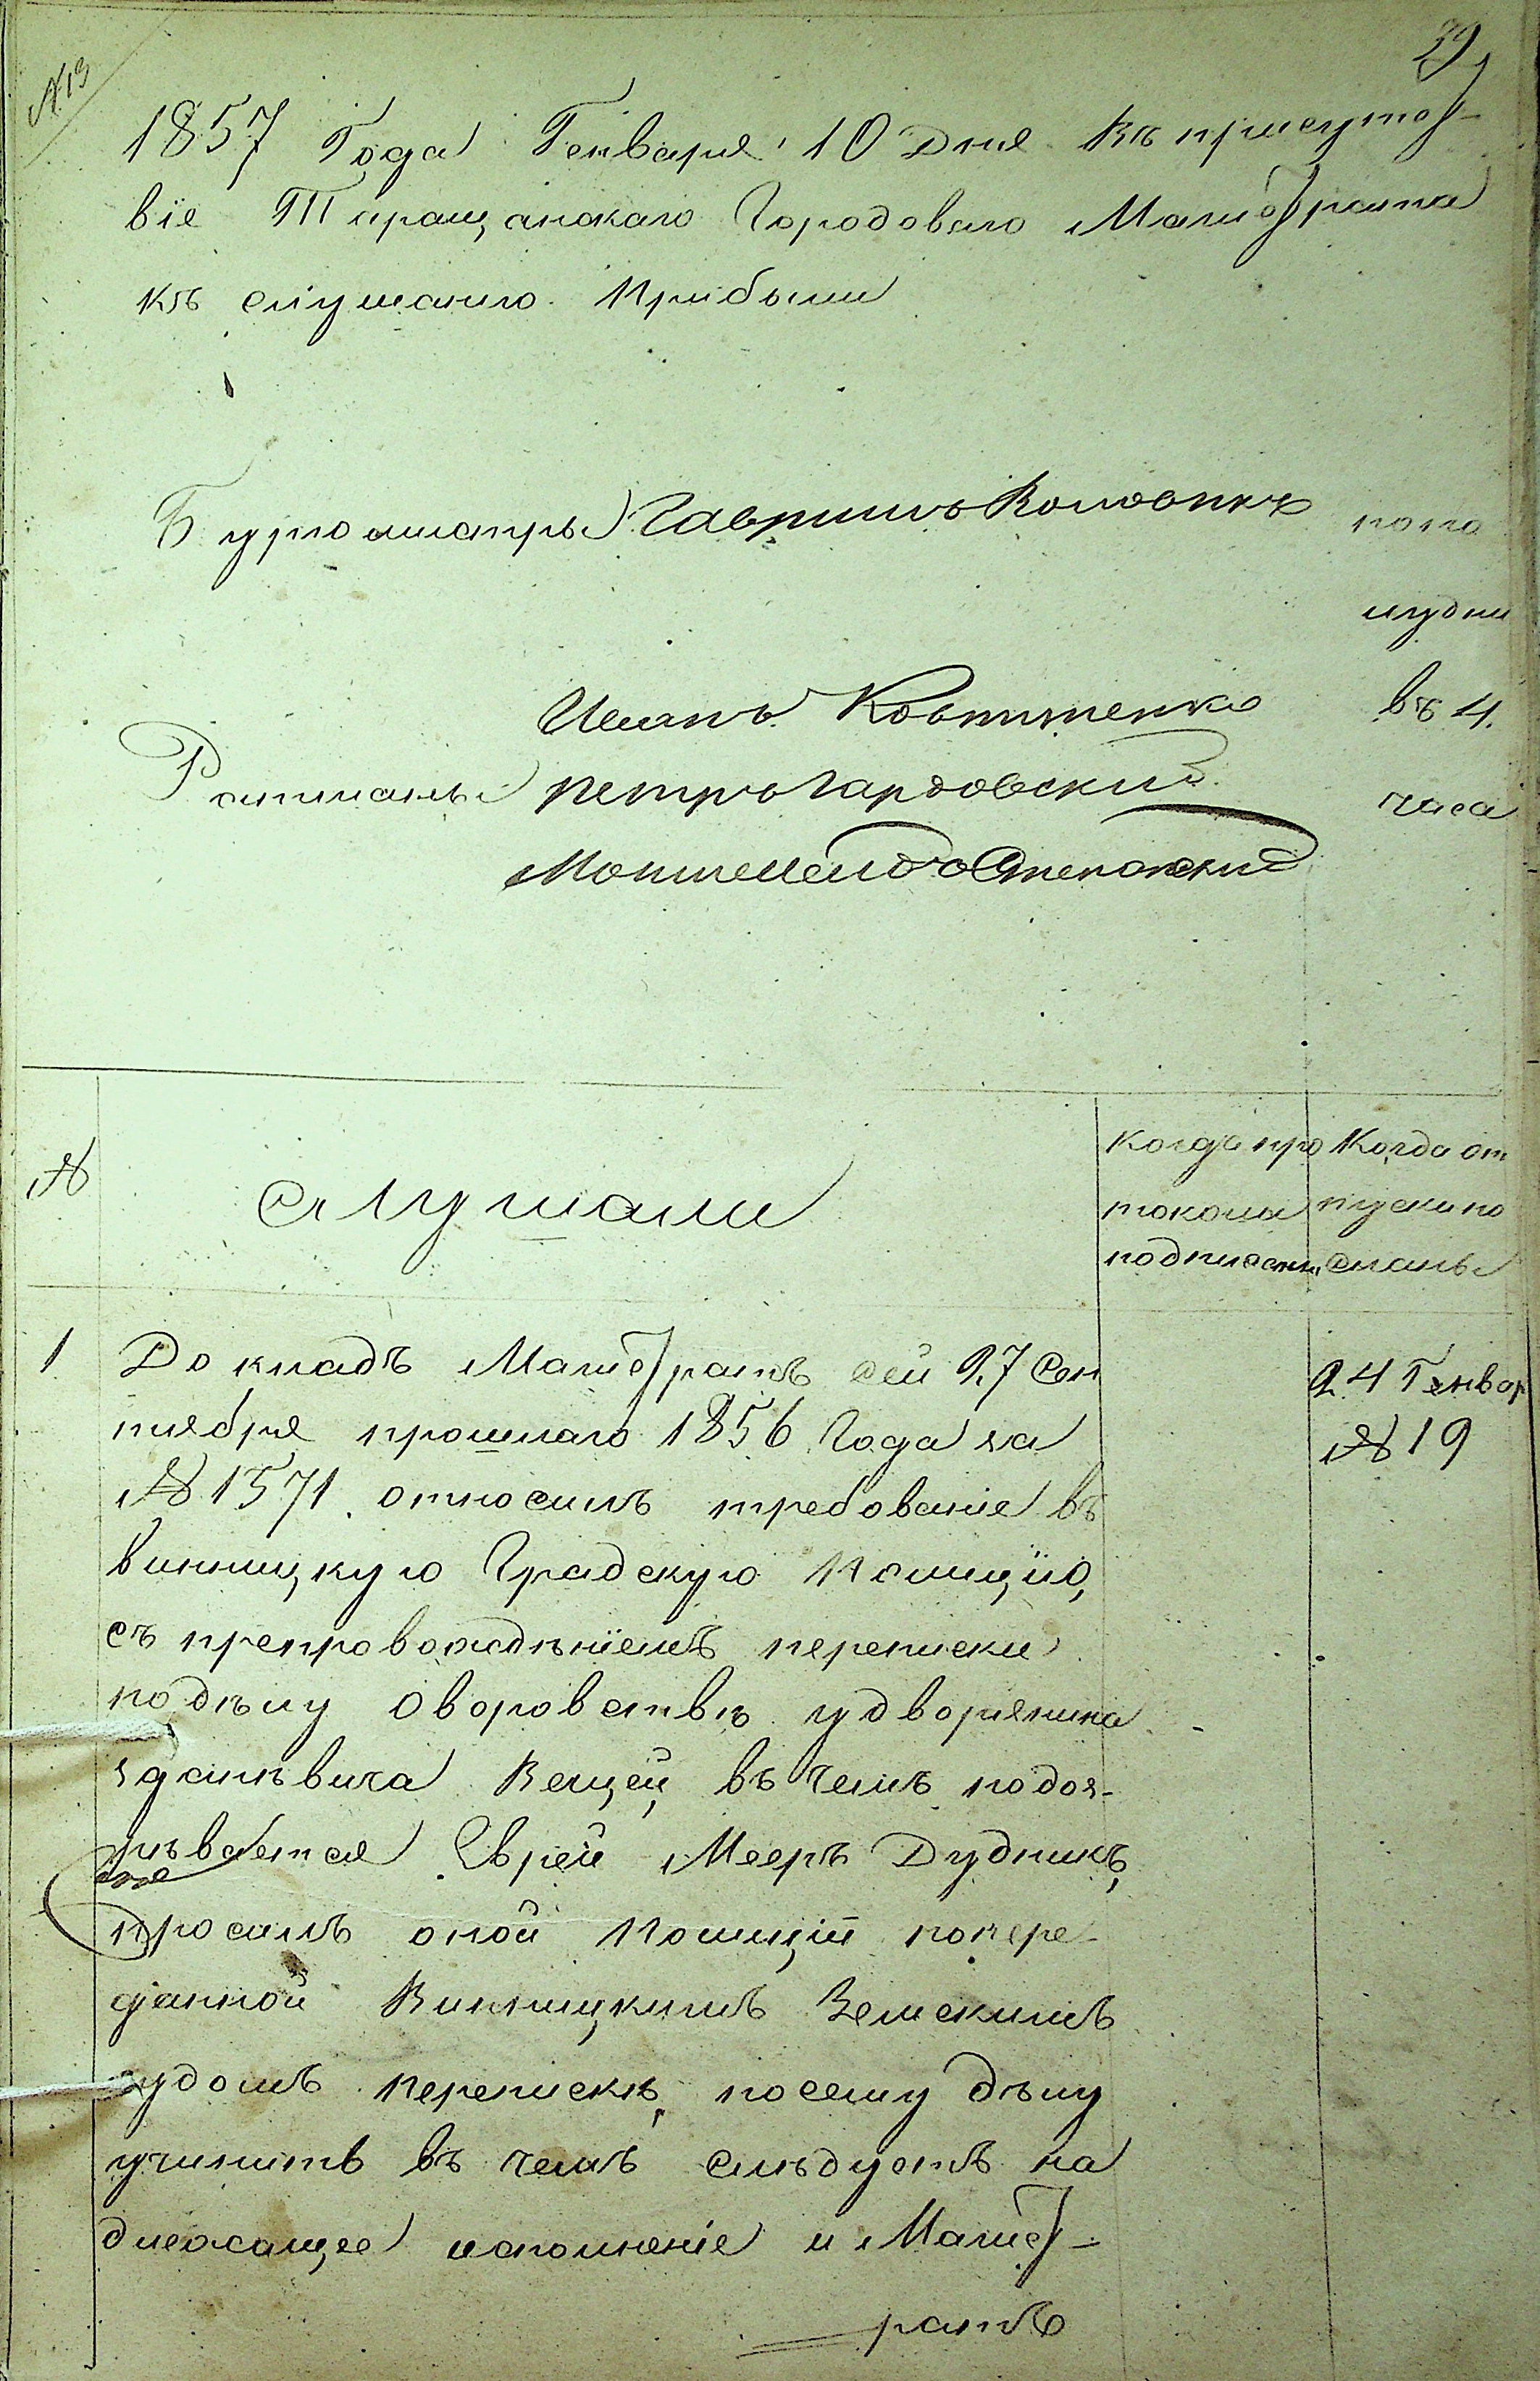 № 13
39
1857 Года Генваря 10 Дня Въ присутст-
віе Таращанскаго Городоваго Магистрата
къ слушанію Прибыли
Бургомистръ Гаврилъ Воловикъ
попо
лудни
Иванъ Ковтуненко
въ 4.
Ратманы Петръ Гардовский
часа
№
Слушали
Когда про
токолъ
подписанъ
Когда от
пускъ по
сланъ
1 Докладъ Магистратъ сей 27 Сен
24 Генвар
тября прошлаго 1856 Года за
№ 19
№ 1571. относилъ требованіе въ
Винницкую Градскую Полицію,
съ препровождѣніемъ переписки
подѣлу Оворовствѣ удворянина
Вещей въ чемъ подоз-
рѣвается Еврей Мееръ Дудникъ,
просилъ оной Полиціи попере
данной Винницкимъ Земскимъ
судомъ Перепискѣ, посему дѣлу
учинить въ чемъ слѣдуетъ на
длежащее исполненіе и Магист-
ратъ